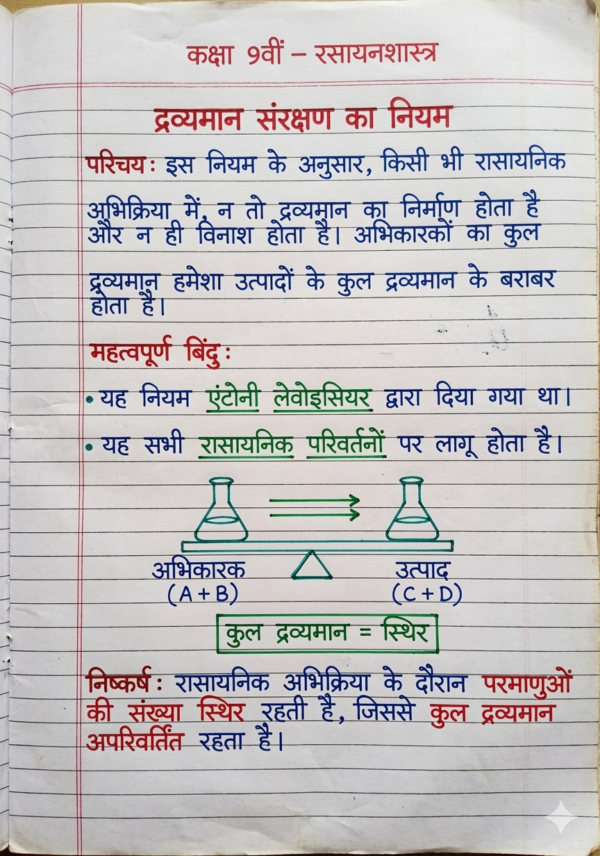 कक्षा 9वीं – रसायनशास्त्र
द्रव्यमान संरक्षण का नियम
परिचय: इस नियम के अनुसार, किसी भी रासायनिक
अभिक्रिया में, न तो द्रव्यमान का निर्माण होता है
और न ही विनाश होता है। अभिकारकों का कुल
द्रव्यमान हमेशा उत्पादों के कुल द्रव्यमान के बराबर
होता है।
महत्वपूर्ण बिंदु:
• यह नियम एंटोनी लेवोइसियर द्वारा दिया गया था।
• यह सभी रासायनिक परिवर्तनों पर लागू होता है।
अभिकारक उत्पाद
(A + B) (C + D)
कुल द्रव्यमान = स्थिर
निष्कर्ष: रासायनिक अभिक्रिया के दौरान परमाणुओं
की संख्या स्थिर रहती है, जिससे कुल द्रव्यमान
अपरिवर्तित रहता है।